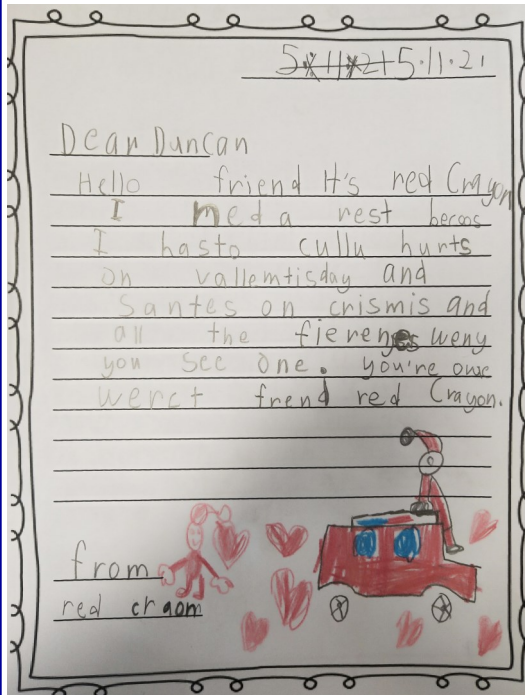 5x11x21 5.11.21
Dear Duncan
Hello friend It's red Crayon
I ned a rest becoos
I hasto cullu hurts
on vallemtisday and
Santes on crismis and
all the fierenges weny
you see one. you're owe
werct frend red Crayon.
from
red craom